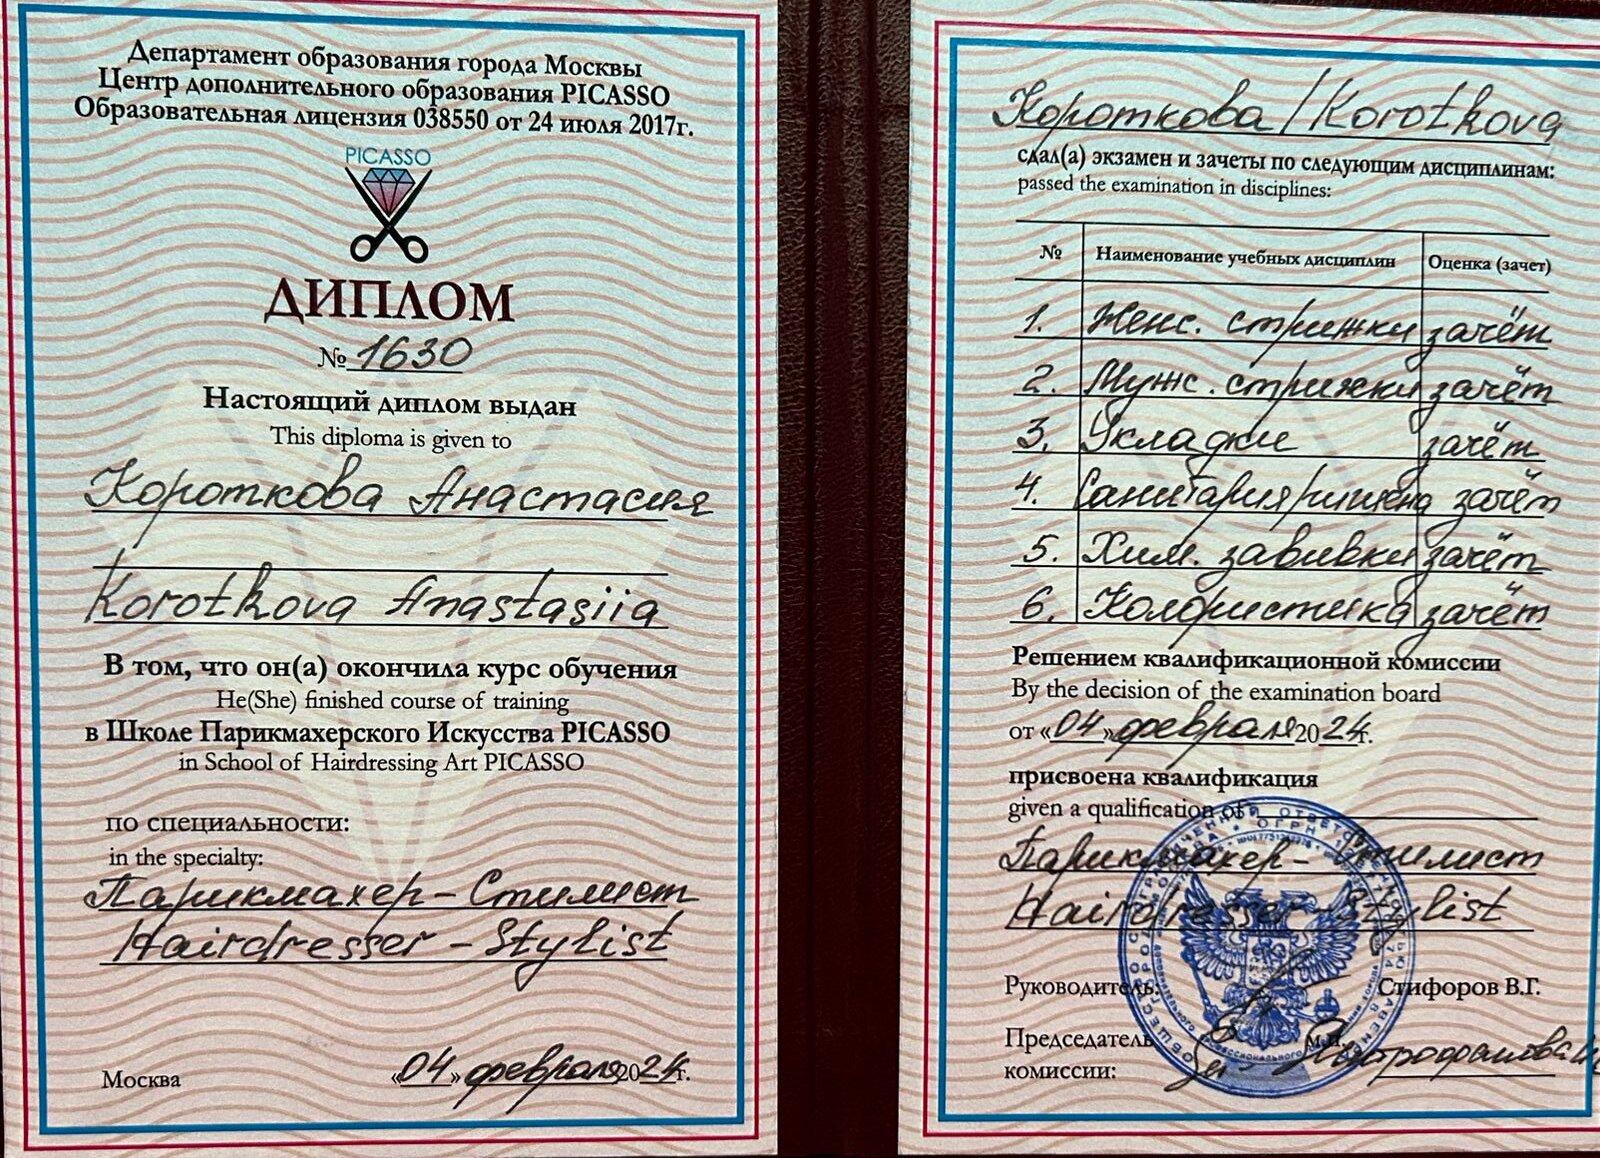 Департамент образования города Москвы
Центр дополнительного образования PICASSO
Образовательная лицензия 038550 от 24 июля 2017г.
PICASSO
ДИПЛОМ
№ 1630
Настоящий диплом выдан
This diploma is given to
Короткова Анастасия
Korotkova Anastasiia
В том, что он(а) окончила курс обучения
He(She) finished course of training
в Школе Парикмахерского Искусства PICASSO
in School of Hairdressing Art PICASSO
по специальности:
in the specialty:
Парикмахер-Стилист
Hairdresser-Stylist
Москва «04» февраля 2024г.
Короткова/Korotkova
сдал(а) экзамен и зачеты по следующим дисциплинам:
passed the examination in disciplines:
№ Наименование учебных дисциплин Оценка (зачет)
1. Женс. стрижки зачёт
2. Мужс. стрижки зачёт
3. Укладки зачёт
4. Санитария/гигиена зачёт
5. Хим. завивки зачёт
6. Колористика зачёт
Решением квалификационной комиссии
By the decision of the examination board
от «04» февраля 2024г.
присвоена квалификация
given a qualification of
Парикмахер-Стилист
Hairdresser-Stylist
Руководитель: Стифоров В.Г.
Председатель м.п.
комиссии: